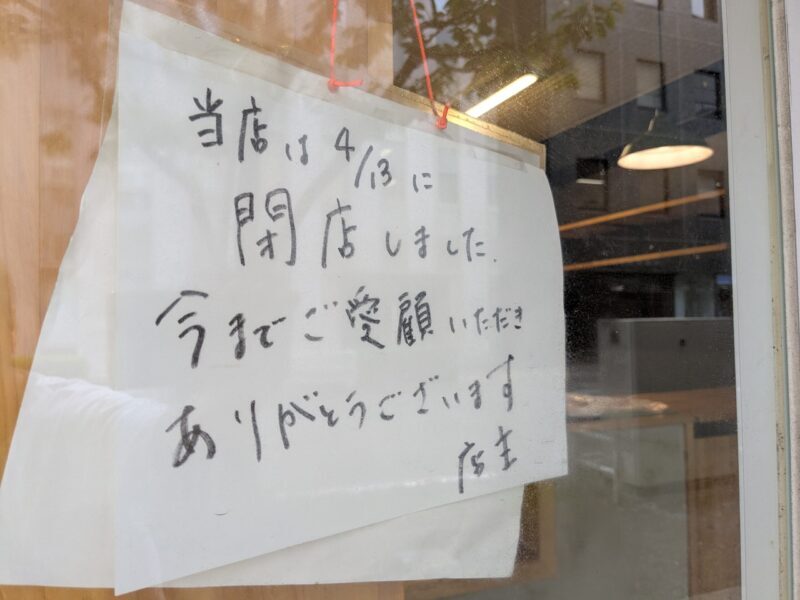 当店は4/13に
閉店しました.
今までご愛顧いただき
ありがとうございます
店主